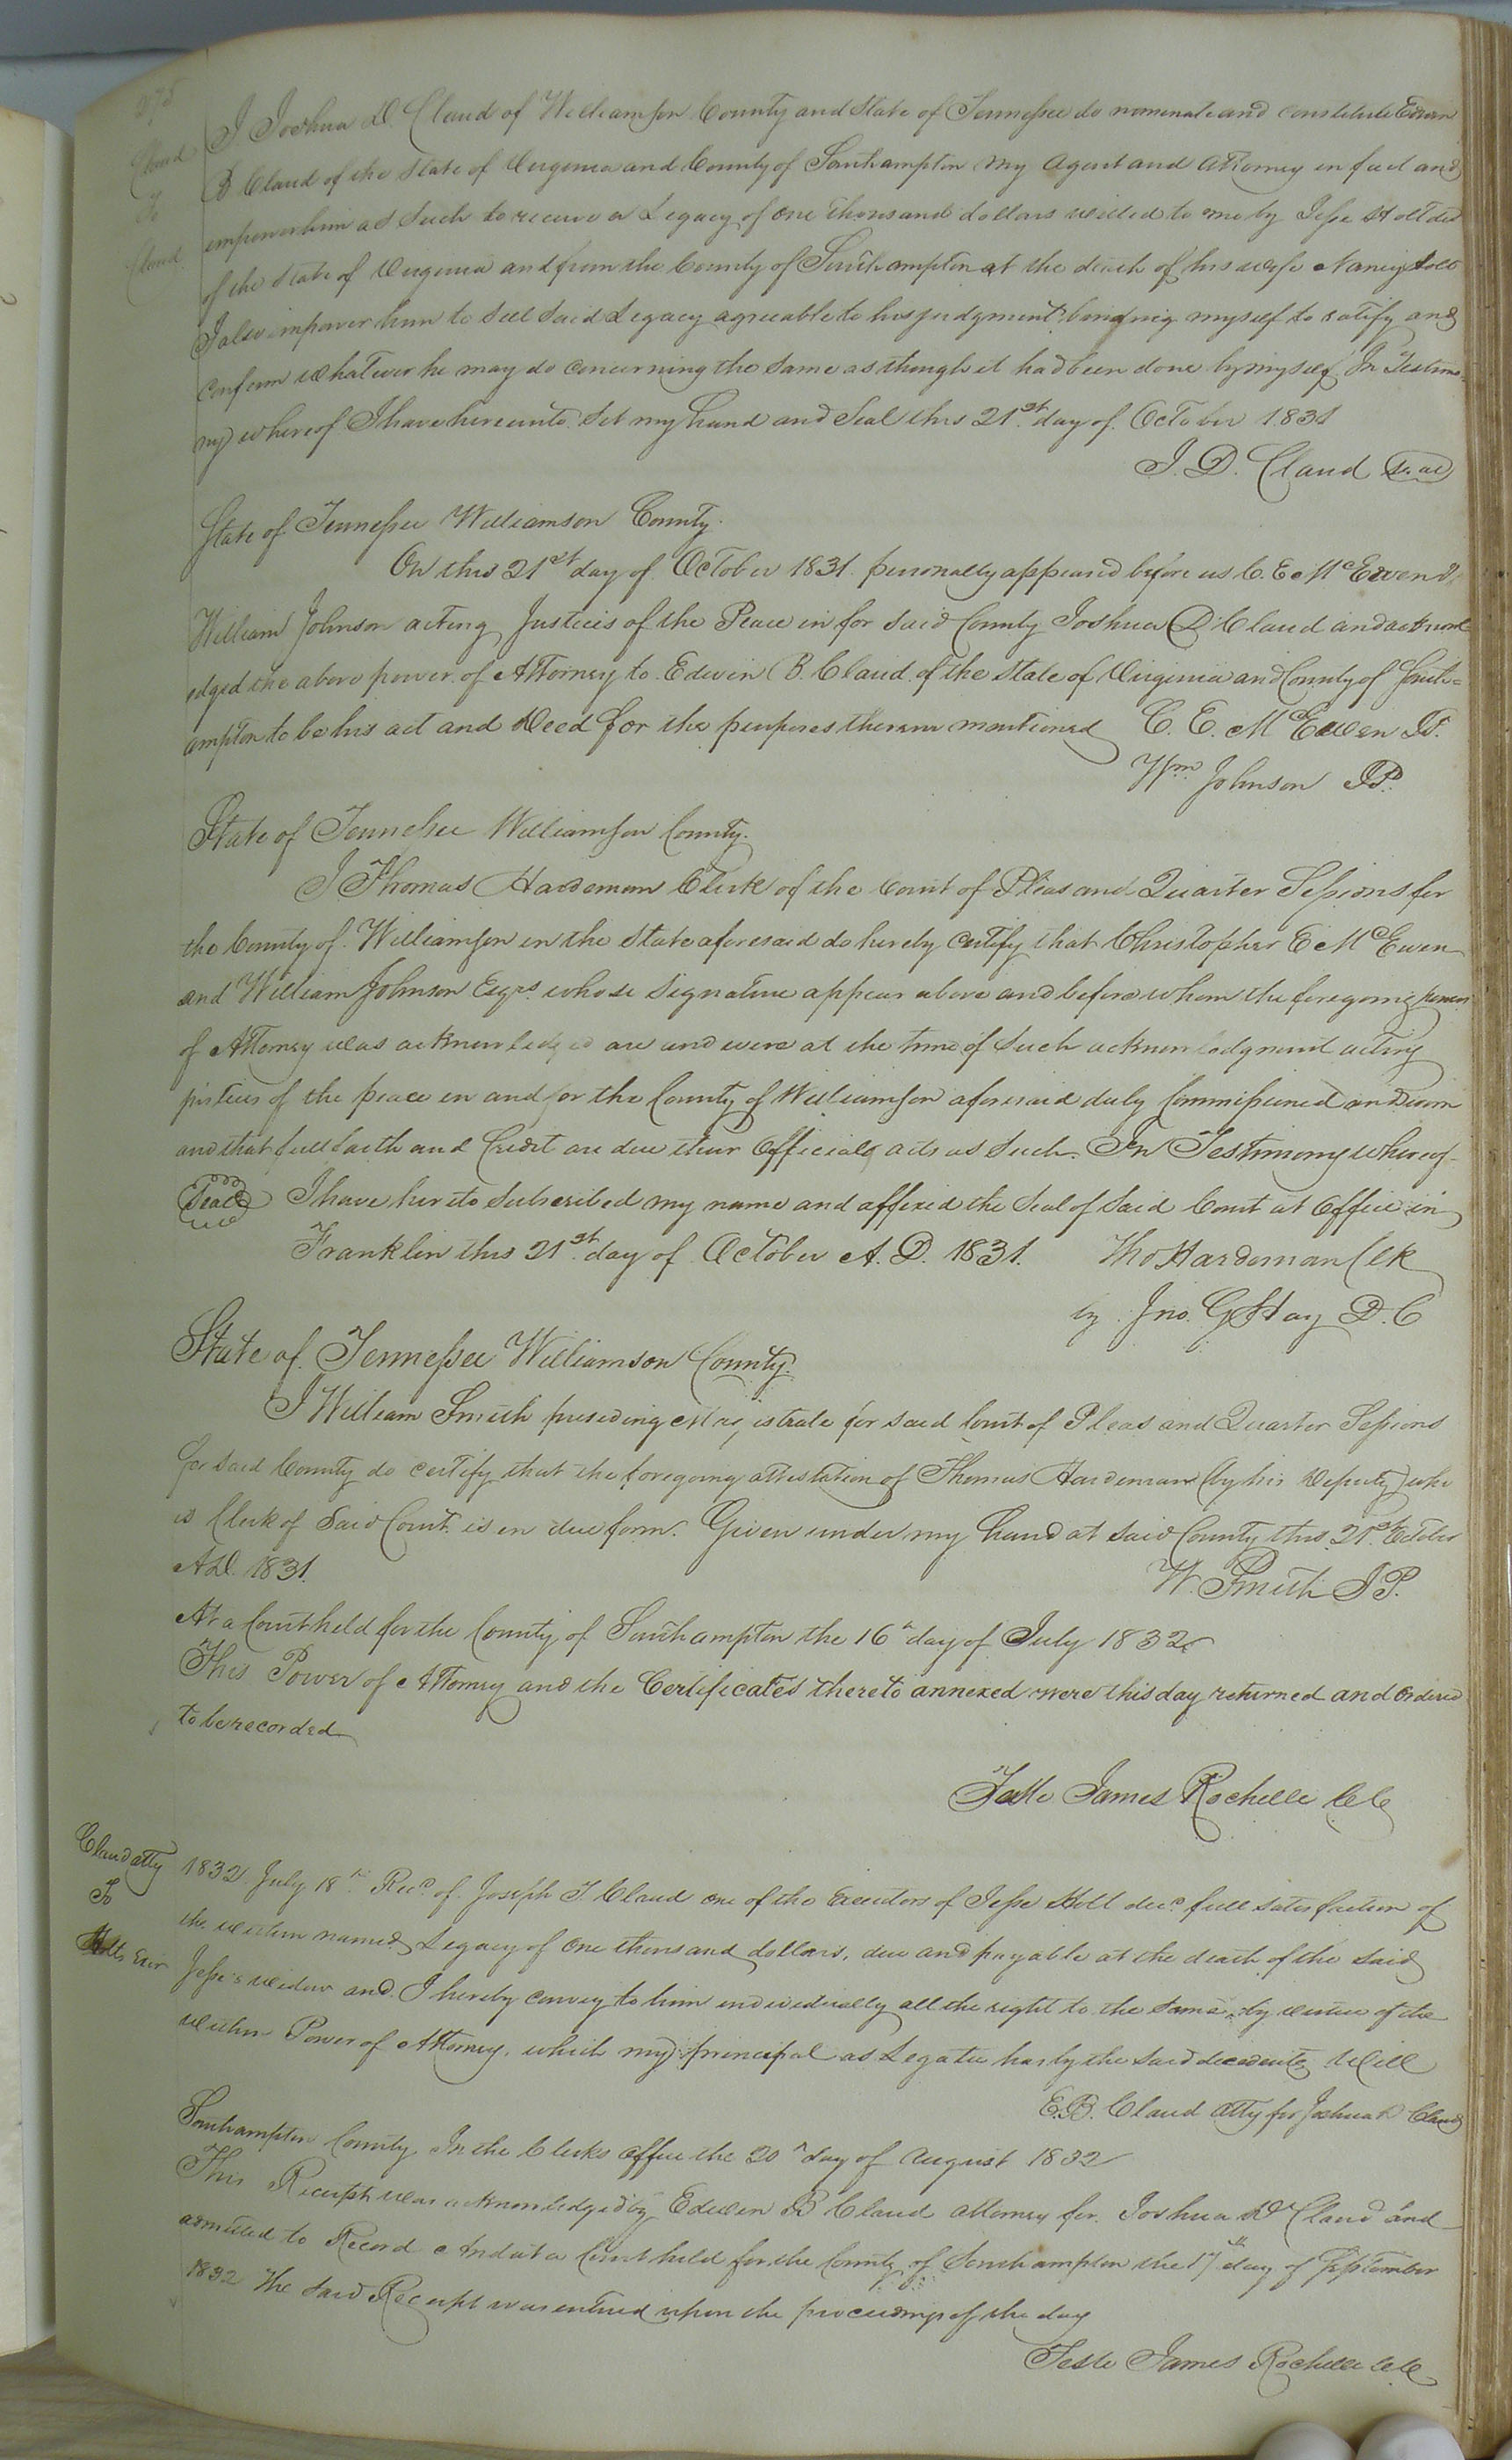 275
Claud
To
Claud
I Joshua D. Claud of Williamson County and State of Tennessee do nominate and constitute Edwin
B Claud of the State of Virginia and County of Southampton my Agent and Attorney in fact and
empower him as such to receive a Legacy of one thousand dollars willed to me by Jesse Holt decd
of the State of Virginia and from the County of Southampton at the death of his wife Nancy Holt
I also impower him to sell said Legacy agreeable to his judgment binding myself to ratify and
confirm whatever he may do concerning the same as though it had been done by myself In Testimo-
ny whereof I have hereunto Set my hand and Seal this 21st day of October 1831
J. D. Claud Seal
State of Tennessee Williamson County.
On this 21st day of October 1831 personally appeared before us C. E. McEwen &
William Johnson acting Justices of the Peace in for said County Joshua D Claud and acknowl
edged the above power of Attorney to Edwin B. Claud of the State of Virginia and County of South-
ampton to be his act and Deed for the purposes therein mentioned C. E. McEwen JP.
Wm. Johnson JP.
State of Tennessee Williamson County.
I Thomas Hardeman Clerk of the Court of Pleas and Quarter Sessions for
the County of Williamson in the State aforesaid do hereby certify that Christopher E McEwen
and William Johnson Esqrs. whose signature appear above and before whom the foregoing power
of Attorney was acknowledged are and were at the time of such acknowledgment acting
justices of the peace in and for the County of Williamson aforesaid duly Commissioned and sworn
and that full faith and Credit are due their Official acts as such. In Testimony whereof
Seal I have hereto subscribed my name and affixed the Seal of said Court at Office in
Franklin this 21st day of October A. D. 1831. Tho Hardeman Clk
by Jno. G Hay D. C
State of Tennessee Williamson County.
I William Smith presiding Magistrate for said Court of Pleas and Quarter Sessions
for said County do certify that the foregoing attestation of Thomas Hardeman (by his Deputy) who
is Clerk of said Court is in due form. Given under my hand at said County this 21st October
A.D. 1831. W. Smith J P.
At a Court held for the County of Southampton the 16th day of July 1832
This Power of Attorney and the Certificates thereto annexed were this day returned and Ordered
to be recorded
Teste James Rochelle CC
Claud atty
To
Holts Exr
1832 July 18th Recd. of Joseph T. Claud one of the Executors of Jesse Holt decd. full satisfaction of
the within named Legacy of One thousand dollars, due and payable at the death of the said
Jesse's widow and I hereby convey to him individually all the right to the same, by virtue of the
within Power of Attorney, which my principal as Legatee has by the said decedents Will
E. B. Claud Atty for Joshua D Claud
Southampton County In the Clerks office the 20th day of August 1832
This Receipt was acknowledged by Edwin B Claud attorney for Joshua D Claud and
admitted to Record And at a Court held for the County of Southampton the 17th day of September
1832 The said Receipt was entered upon the proceedings of the day
Teste James Rochelle CC